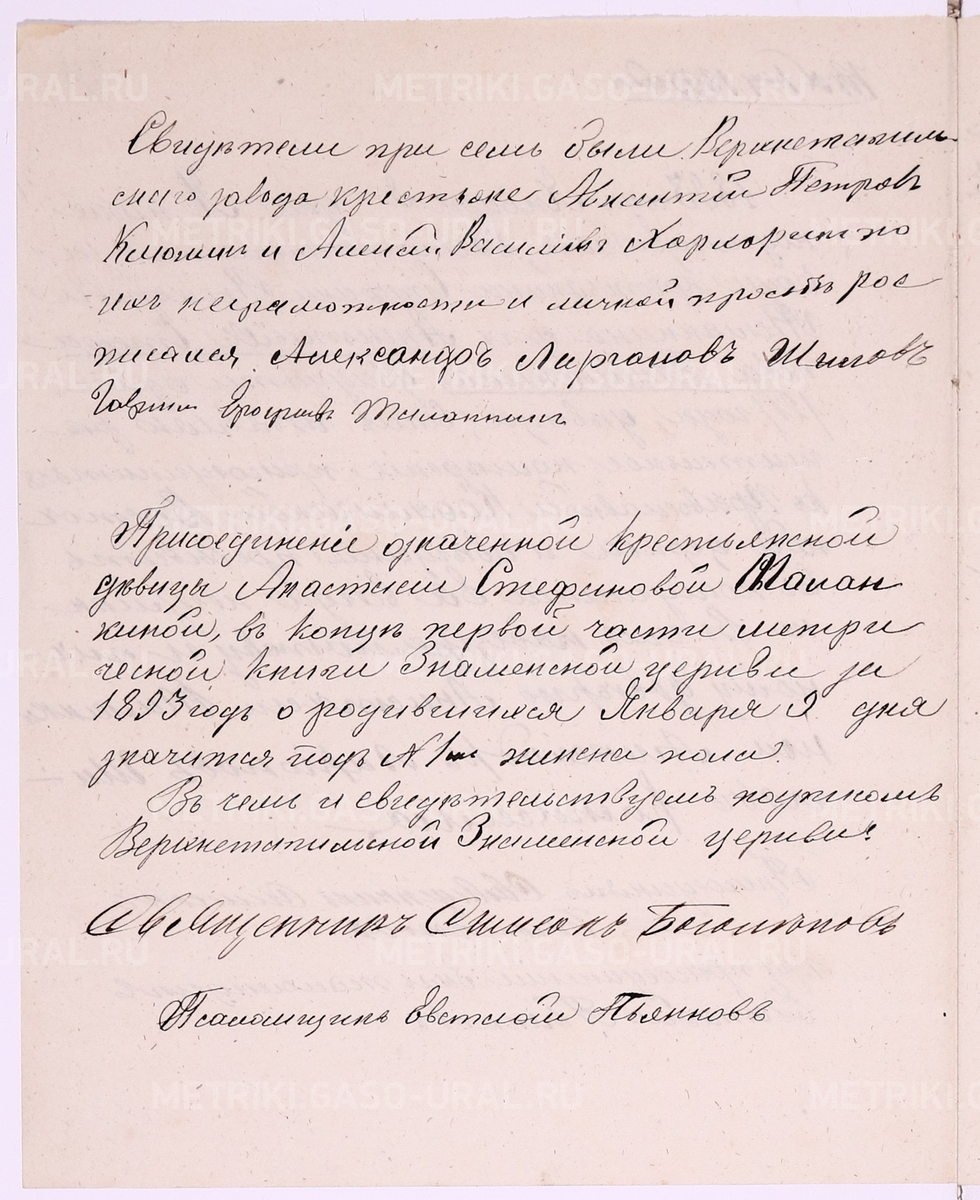 Свидѣтели при семъ были Верхнетагиль-
скаго завода крестьяне Авксентій Петровъ
и Алексѣй Васильевъ по
ихъ неграмотности и личной просьбѣ рос
писался Александръ Шиловъ
Гаврiилъ Ерофѣевъ
Присоединеніе означенной крестьянской
дѣвицы Анастасіи Стефановой Малан
киной, въ концѣ первой части метри
ческой книги Знаменской церкви за
1893 годъ о родившихся Января 9 дня
значится подъ № 1мъ женска пола.
Въ чемъ и свидѣтельствуемъ
Верхнетагильской Знаменской церкви:
Священникъ Симеонъ Боголюповъ
Псаломщикъ Евстаѳій Пьянковъ
METRIKI.GASO-URAL.RU